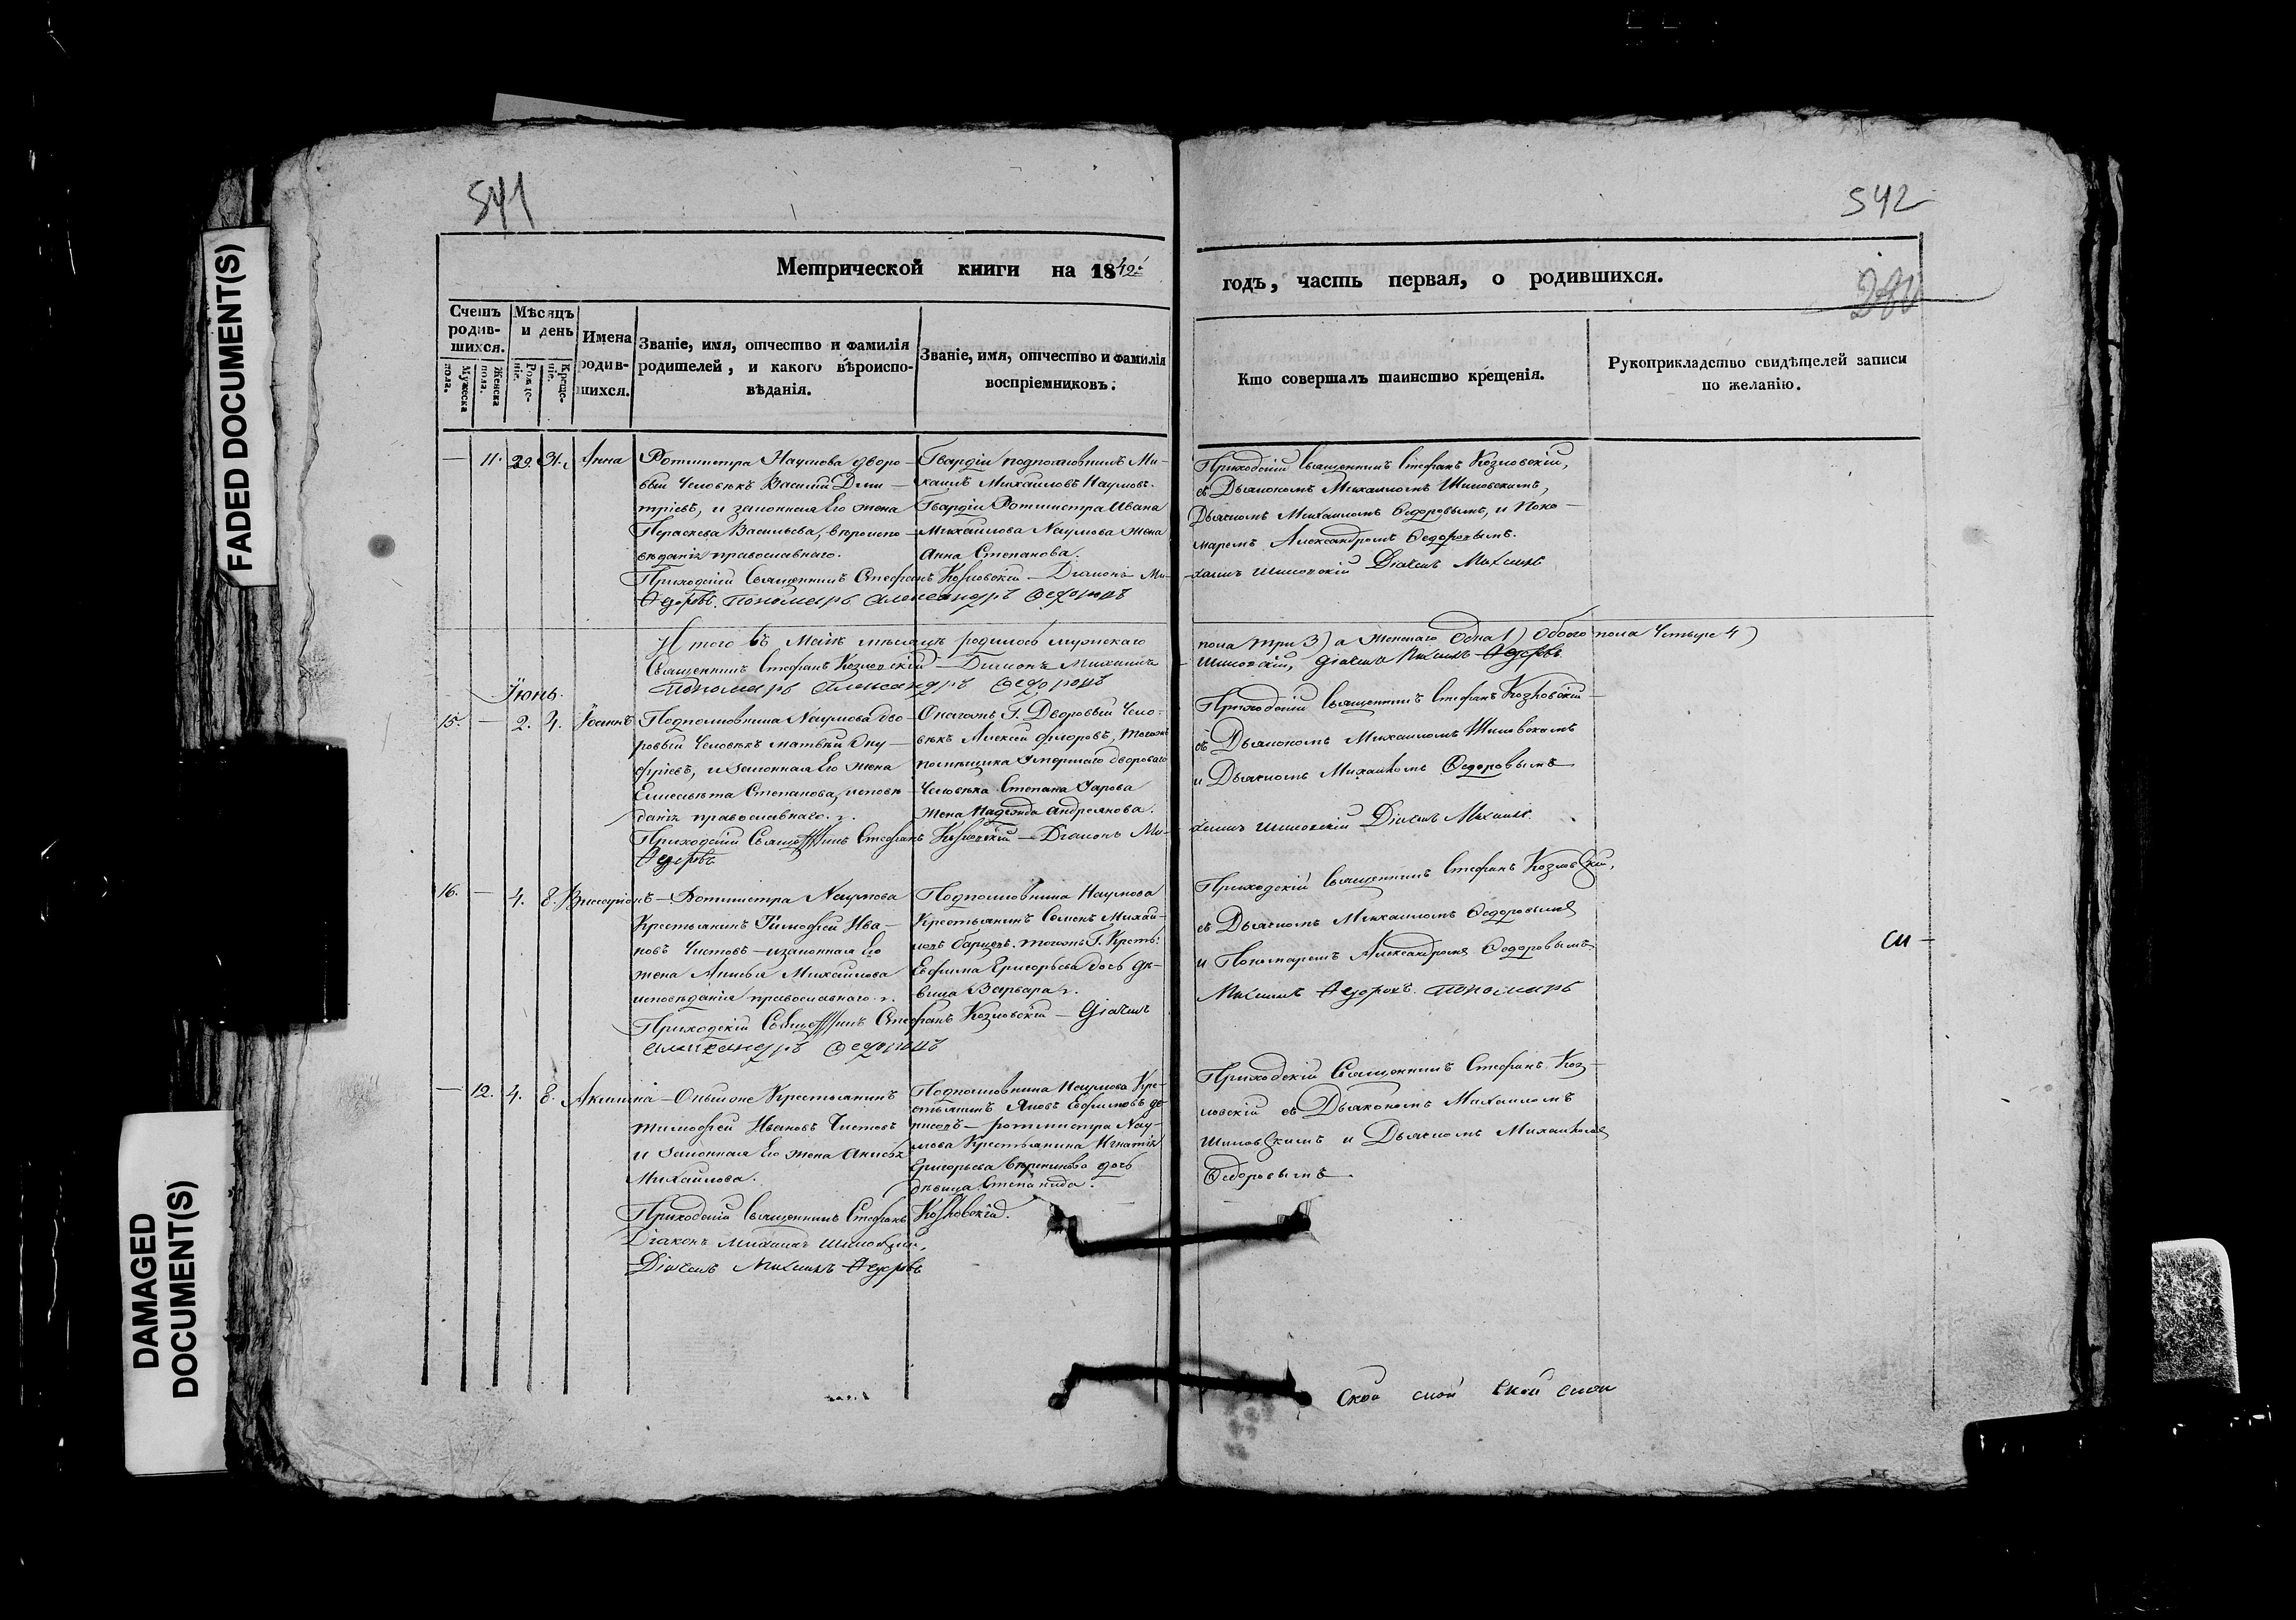 541
542
Метрической книги на 1842
годъ, часть первая, о родившихся.
Счетъ родив-шихся.
Мужеска пола.
Женска пола.
Мѣсяцъ и день
Рожде-ніе.
Креще-ніе.
Имена родив-шихся.
Званіе, имя, отчество и фамилія
родителей, и какого вѣроиспо-
вѣданія.
Званіе, имя, отчество и фамилія
воспріемниковъ.
Кто совершалъ таинство крещенія.
Рукоприкладство свидѣтелей записи
по желанію.
11. 29. 31. Анна
Ротмистра Наумова дворо-
вый Человѣкъ Василій Дми-
тріевъ, и законная Его жена
Параскева Васильева, вѣроиспо-
вѣданія православнаго.
Гвардіи подполковникъ Ми-
хаилъ Михайловъ Наумовъ.
Гвардіи Ротмистра Ивана
Михайлова Наумова жена
Анна Степанова.
Приходскій Священникъ Стефанъ Козловскій,
съ Дьякономъ Михаиломъ Шиловскимъ,
Дьячкомъ Михаиломъ Федоровымъ, и Поно-
маремъ Александромъ Федоровымъ.
Приходскій Священникъ Стефанъ Козловскій — Діаконъ Ми-
хаилъ Шиловскій Дьячекъ Михаилъ
Федоровъ. Пономарь Александръ Федоровъ
Итого въ Маіѣ мѣсяцѣ родилось мужескаго
пола три 3) а Женскаго Одна 1) Обоего пола Четыре 4)
Священникъ Стефанъ Козловскій — Діаконъ Михаилъ
Шиловскій, Дьячекъ Михаилъ Федоровъ
Пономарь Александръ Федоровъ
Іюнь.
15. — 2. 4. Іоаннъ
Подполковника Наумова дво-
ровый Человѣкъ Матвѣй Ону-
фріевъ, и Законная Его жена
Елисавета Степанова, исповѣ-
данія православнаго.
Онагожъ Г. Дворовый Чело-
вѣкъ Алексей Флоровъ, тогожъ
помѣщика Умершаго двороваго
Человѣка Степана
жена Надежда Андреянова.
Приходскій Священникъ Стефанъ Козловскій
съ Дьякономъ Михаиломъ Шиловскимъ
и Дьячкомъ Михаиломъ Федоровымъ
Приходскій Священникъ Стефанъ Козловскій — Діаконъ Ми-
хаилъ Шиловскій Дьячекъ Михаилъ
Федоровъ
16. — 4. 8. Виссаріонъ
Ротмистра Наумова
Крестьянинъ Тимофей Ива-
новъ Чистовъ — и законная Его
жена Михайлова
исповѣданія православнаго.
Подполковника Наумова
Крестьянинъ Семенъ Михай-
ловъ тогожъ Г. Кресть:
Евфима Григорьева дочь дѣ-
вица Варвара.
Приходскій Священникъ Стефанъ Козловскій,
съ Дьячкомъ Михаиломъ Федоровымъ
и Пономаремъ Александромъ Федоровымъ
Приходскій Священникъ Стефанъ Козловскій — Дьячекъ
Михаилъ Федоровъ. Пономарь
Александръ Федоровъ
— 12. 4. 8. Акилина
Онагоже Крестьянинъ
Тимофей Ивановъ Чистовъ
и Законная Его жена
Михайлова.
Подполковника Наумова Кре-
стьянинъ Яковъ Евфимовъ
ротмистра Нау-
мова Крестьянина Игнатія
Григорьева дочь
дѣвица Степанида.
Приходскій Священникъ Стефанъ Коз-
ловскій съ Дьякономъ Михаиломъ
Шиловскимъ и Дьячкомъ Михаиломъ
Федоровымъ
Приходскій Священникъ Стефанъ Козловскій.
Діаконъ Михаилъ Шиловскій,
Дьячекъ Михаилъ Федоровъ
FADED DOCUMENT(S)
DAMAGED
DOCUMENT(S)